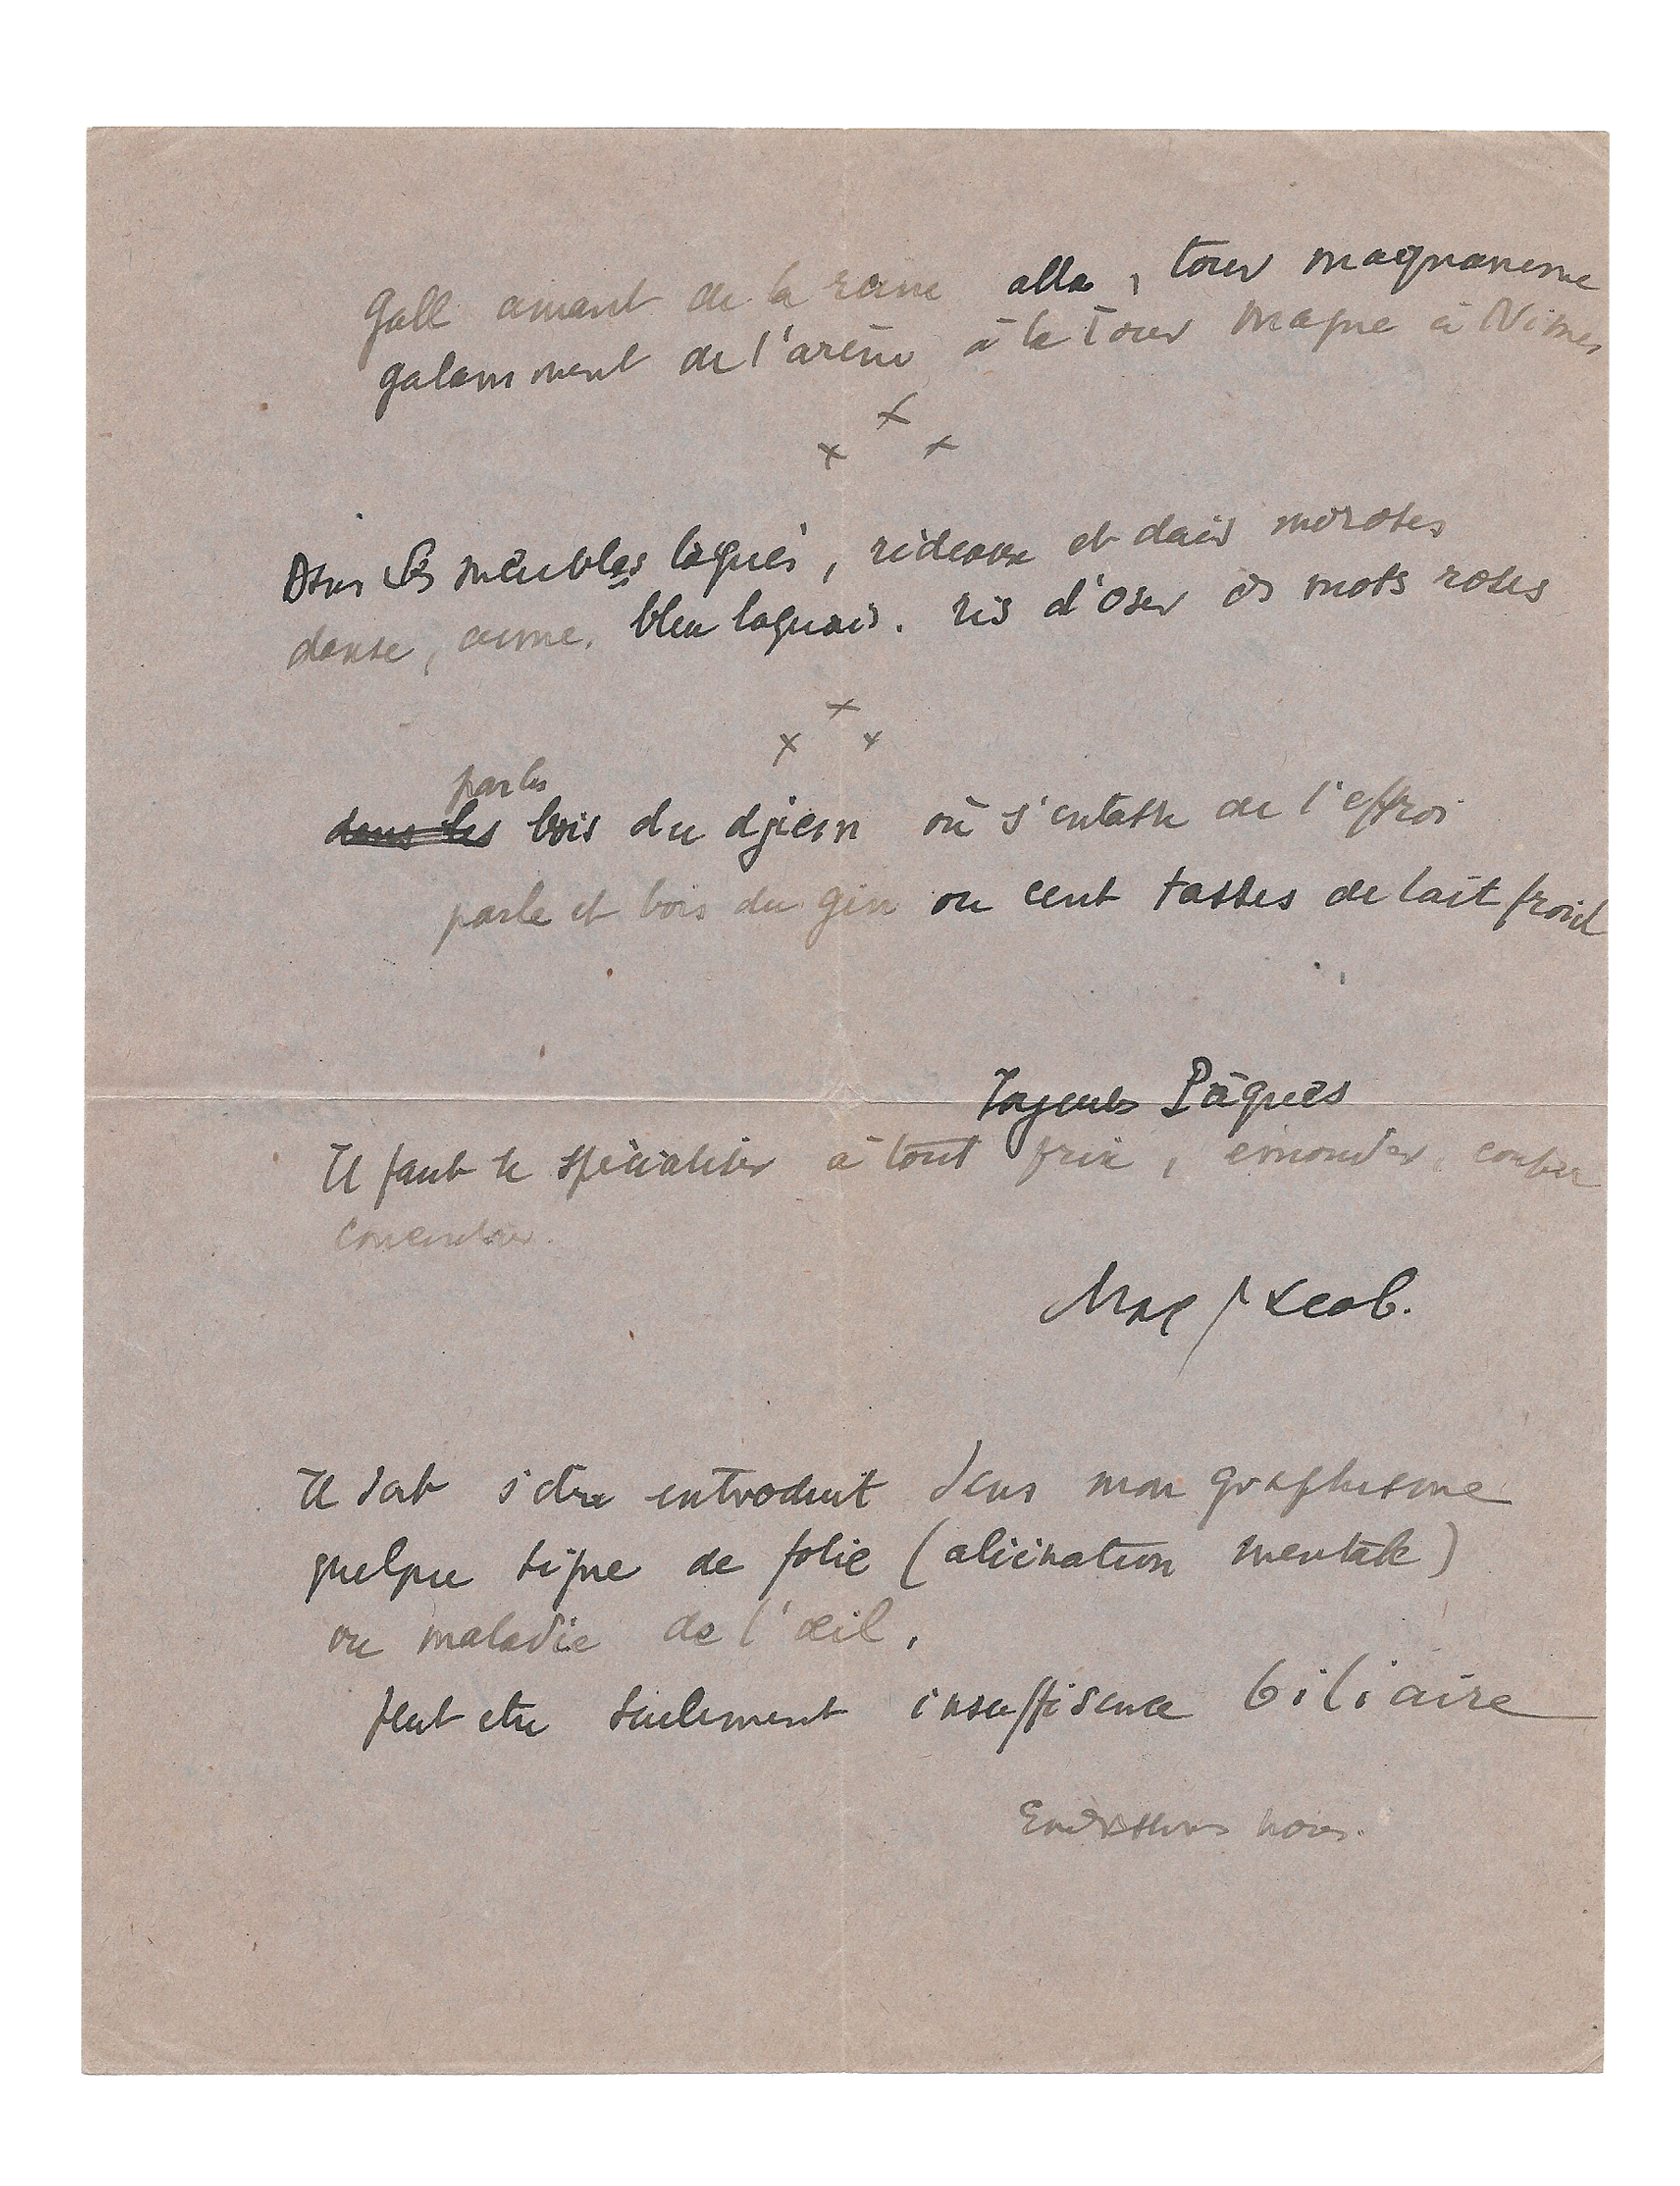 Gall amant de la reine alla, tour magnanime
galamment de l'arène à la Tour Magne à Nîmes
x x x
Dans ces meubles laqués, rideaux et dais moroses
danse, aime, bleu laquais. ris d'oser des mots roses
x x x
par les
dans les bois du djinn où s'entasse de l'effroi
parle et bois du gin ou cent tasses de lait froid
Joyeuses Pâques
Il faut se spécialiser à tout prix, émonder,
concentrer.
Max Jacob.
Il doit s'être introduit dans mon graphisme
quelque signe de folie (aliénation mentale)
ou maladie de l'œil,
peut etre seulement insuffisance biliaire
Embrassons nous.